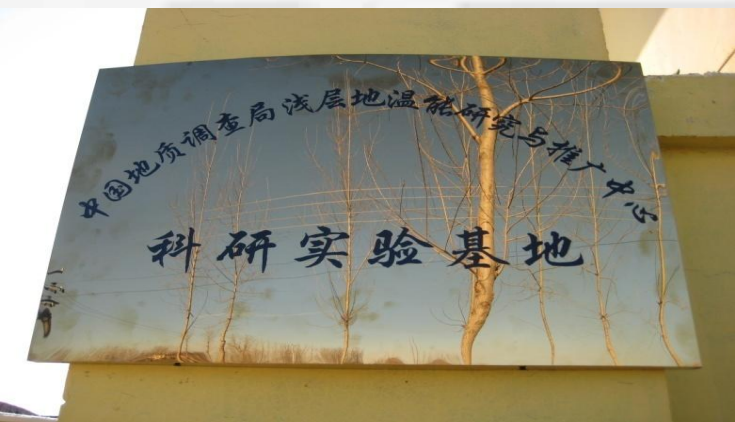 中国地质调查局浅层地温能研究与推广中心
科研实验基地